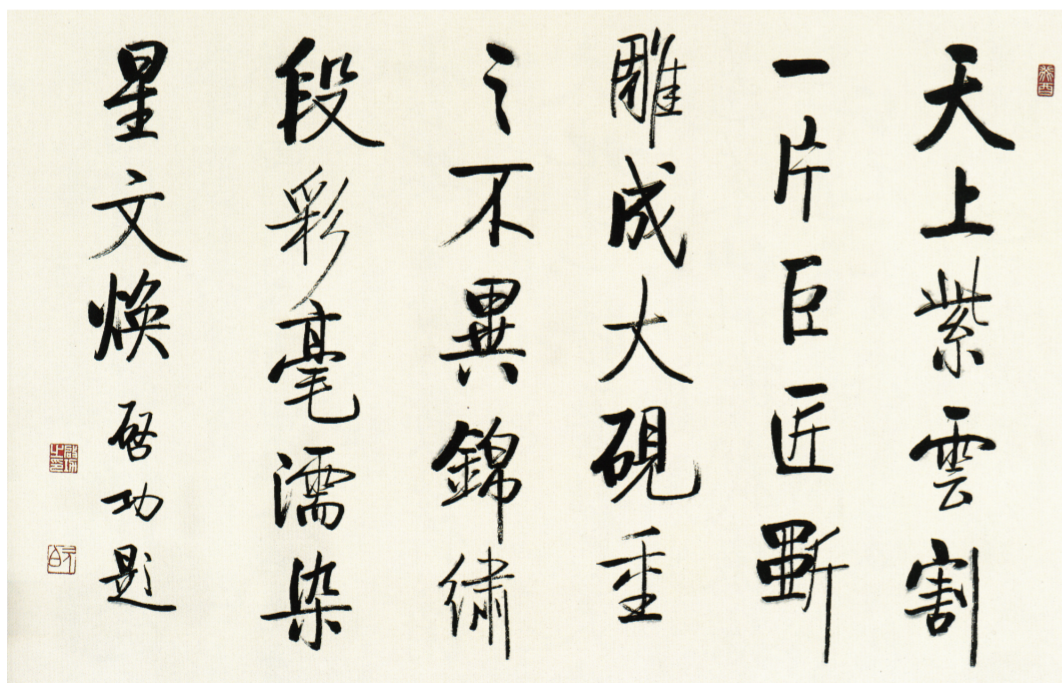 天上紫雲割
一片巨匠斲
雕成大硯重
之不異錦繡
段彩毫濡染
星文焕
啓功題